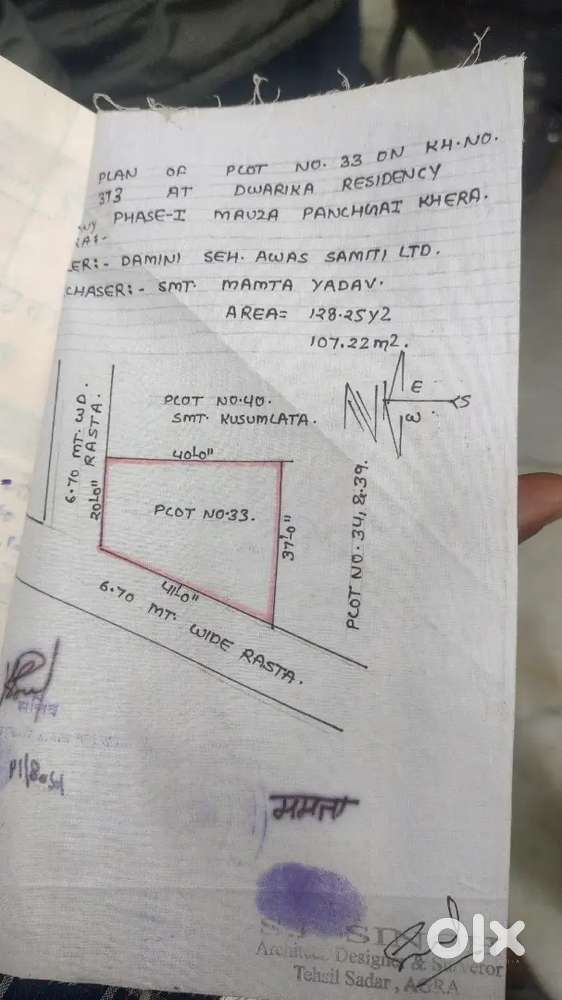 PLAN OF PLOT NO. 33 ON KH.NO.
373 AT DWARIKA RESIDENCY
PHASE-I MAUZA PANCHGAI KHERA.
ER:- DAMINI SEH. AWAS SAMITI LTD.
CHASER:- SMT. MAMTA YADAV.
AREA= 128.25Y2
107.22m2.
PLOT NO.40.
SMT. KUSUMLATA.
N
E
S
W
6.70 MT. WD.
RASTA.
40'-0"
20'-0"
PLOT NO.33.
37'-0"
PLOT NO. 34, & 39.
41'-0"
6.70 MT. WIDE RASTA.
सचिव
ममता
Architect Designer & Surveyor
Tehsil Sadar, AGRA
olx